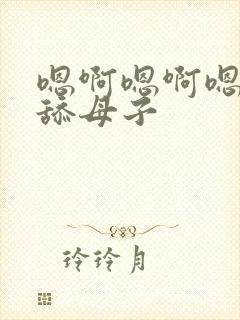 嗯啊嗯啊嗯
舔母子
玲玲月